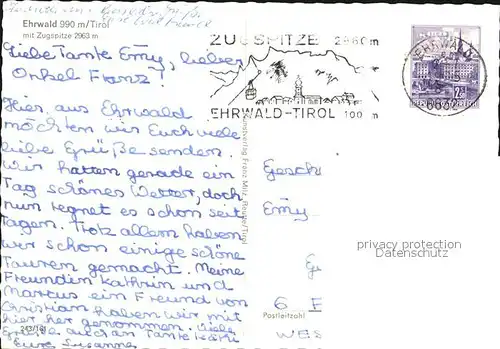 Ehrwald 990 m/Tirol
mit Zugspitze 2963 m.
Liebe Tante Emy, lieber
Onkel Franz!
Hier aus Ehrwald
möchten wir Euch viele
liebe Grüße senden.
Wir hatten gerade ein
Tag schönes Wetter, doch
nun regnet es schon seit
Tagen. Trotz allem haben
wir schon einige schöne
Touren gemacht. Meine
Freundin Kathrin und
Marcus ein Freund von
Christian haben wir mit
hier her genommen. Viele
Grüße auch an Tante Käthi
Eure Susanne
243/161
ZUGSPITZE 2960 m
EHRWALD-TIROL 1000 m
EHRWALD
6632
Franz Milz, Reutte/Tirol
Gesch
Emy
6 F
Postleitzahl
WES
privacy protection
Datenschutz